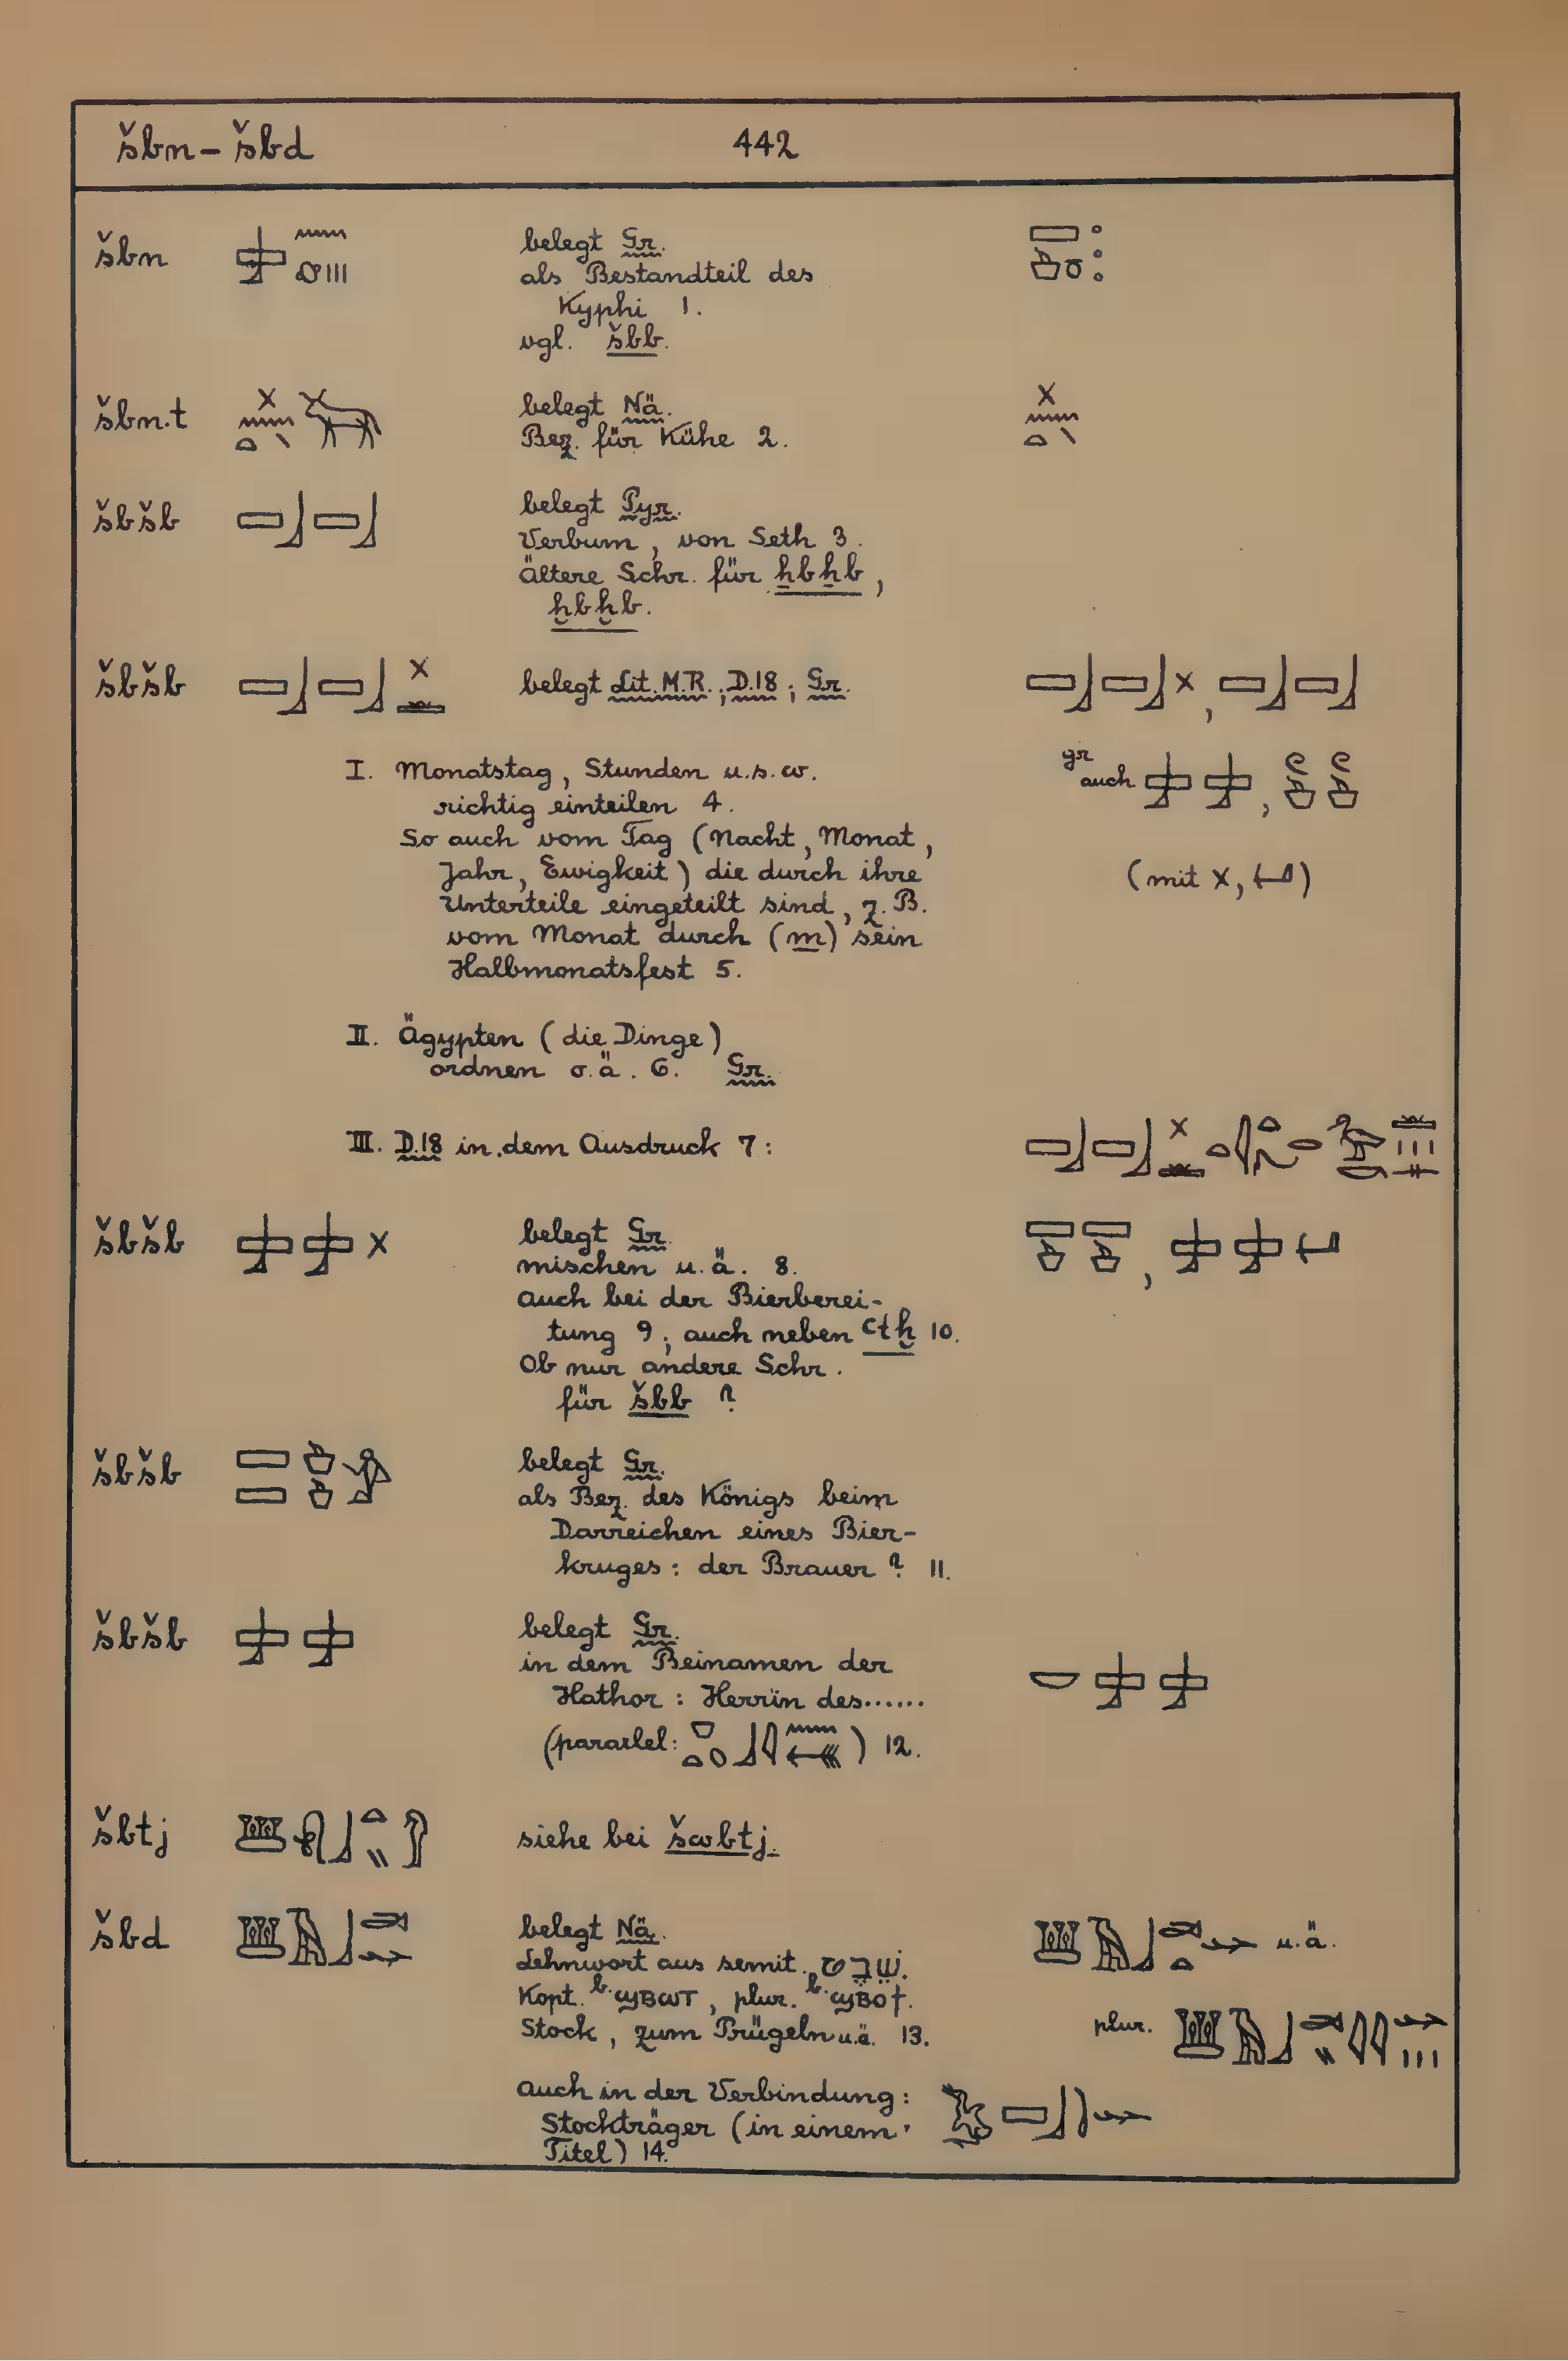 šbn – šbd 442
šbn belegt Gr.
als Bestandteil des
Kyphi 1.
vgl. šbb.
šbn.t belegt Nä.
Bez. für Kühe 2.
šbšb belegt Pyr.
Verbum, von Seth 3.
Ältere Schr. für ẖbẖb,
ḫbḫb.
šbšb belegt Lit. M.R.; D.18; Gr.
I. Monatstag, Stunden u.s.w.
richtig einteilen 4.
gr auch
So auch vom Tag (Nacht, Monat,
Jahr, Ewigkeit) die durch ihre
(mit
Unterteile eingeteilt sind, z.B.
vom Monat durch (m) sein
Halbmonatsfest 5.
II. Ägypten (die Dinge)
ordnen o.ä. 6. Gr.
III. D.18 in dem Ausdruck 7:
šbšb belegt Gr.
mischen u.ä. 8.
auch bei der Bierberei-
tung 9; auch neben ꜥtḫ 10.
Ob nur andere Schr.
für šbb ?
šbšb belegt Gr.
als Bez. des Königs beim
Darreichen eines Bier-
kruges: der Brauer ? 11.
šbšb belegt Gr.
in dem Beinamen der
Hathor: Herrin des......
(parallel: ) 12.
šbtj siehe bei šwbtj.
šbd belegt Nä.
Lehnwort aus semit. שׁבט.
u.ä.
Kopt. b. ϣⲃⲱⲧ, plur. b. ϣⲃⲟϯ.
Stock, zum Prügeln u.ä. 13.
plur.
auch in der Verbindung:
Stockträger (in einem
Titel) 14.